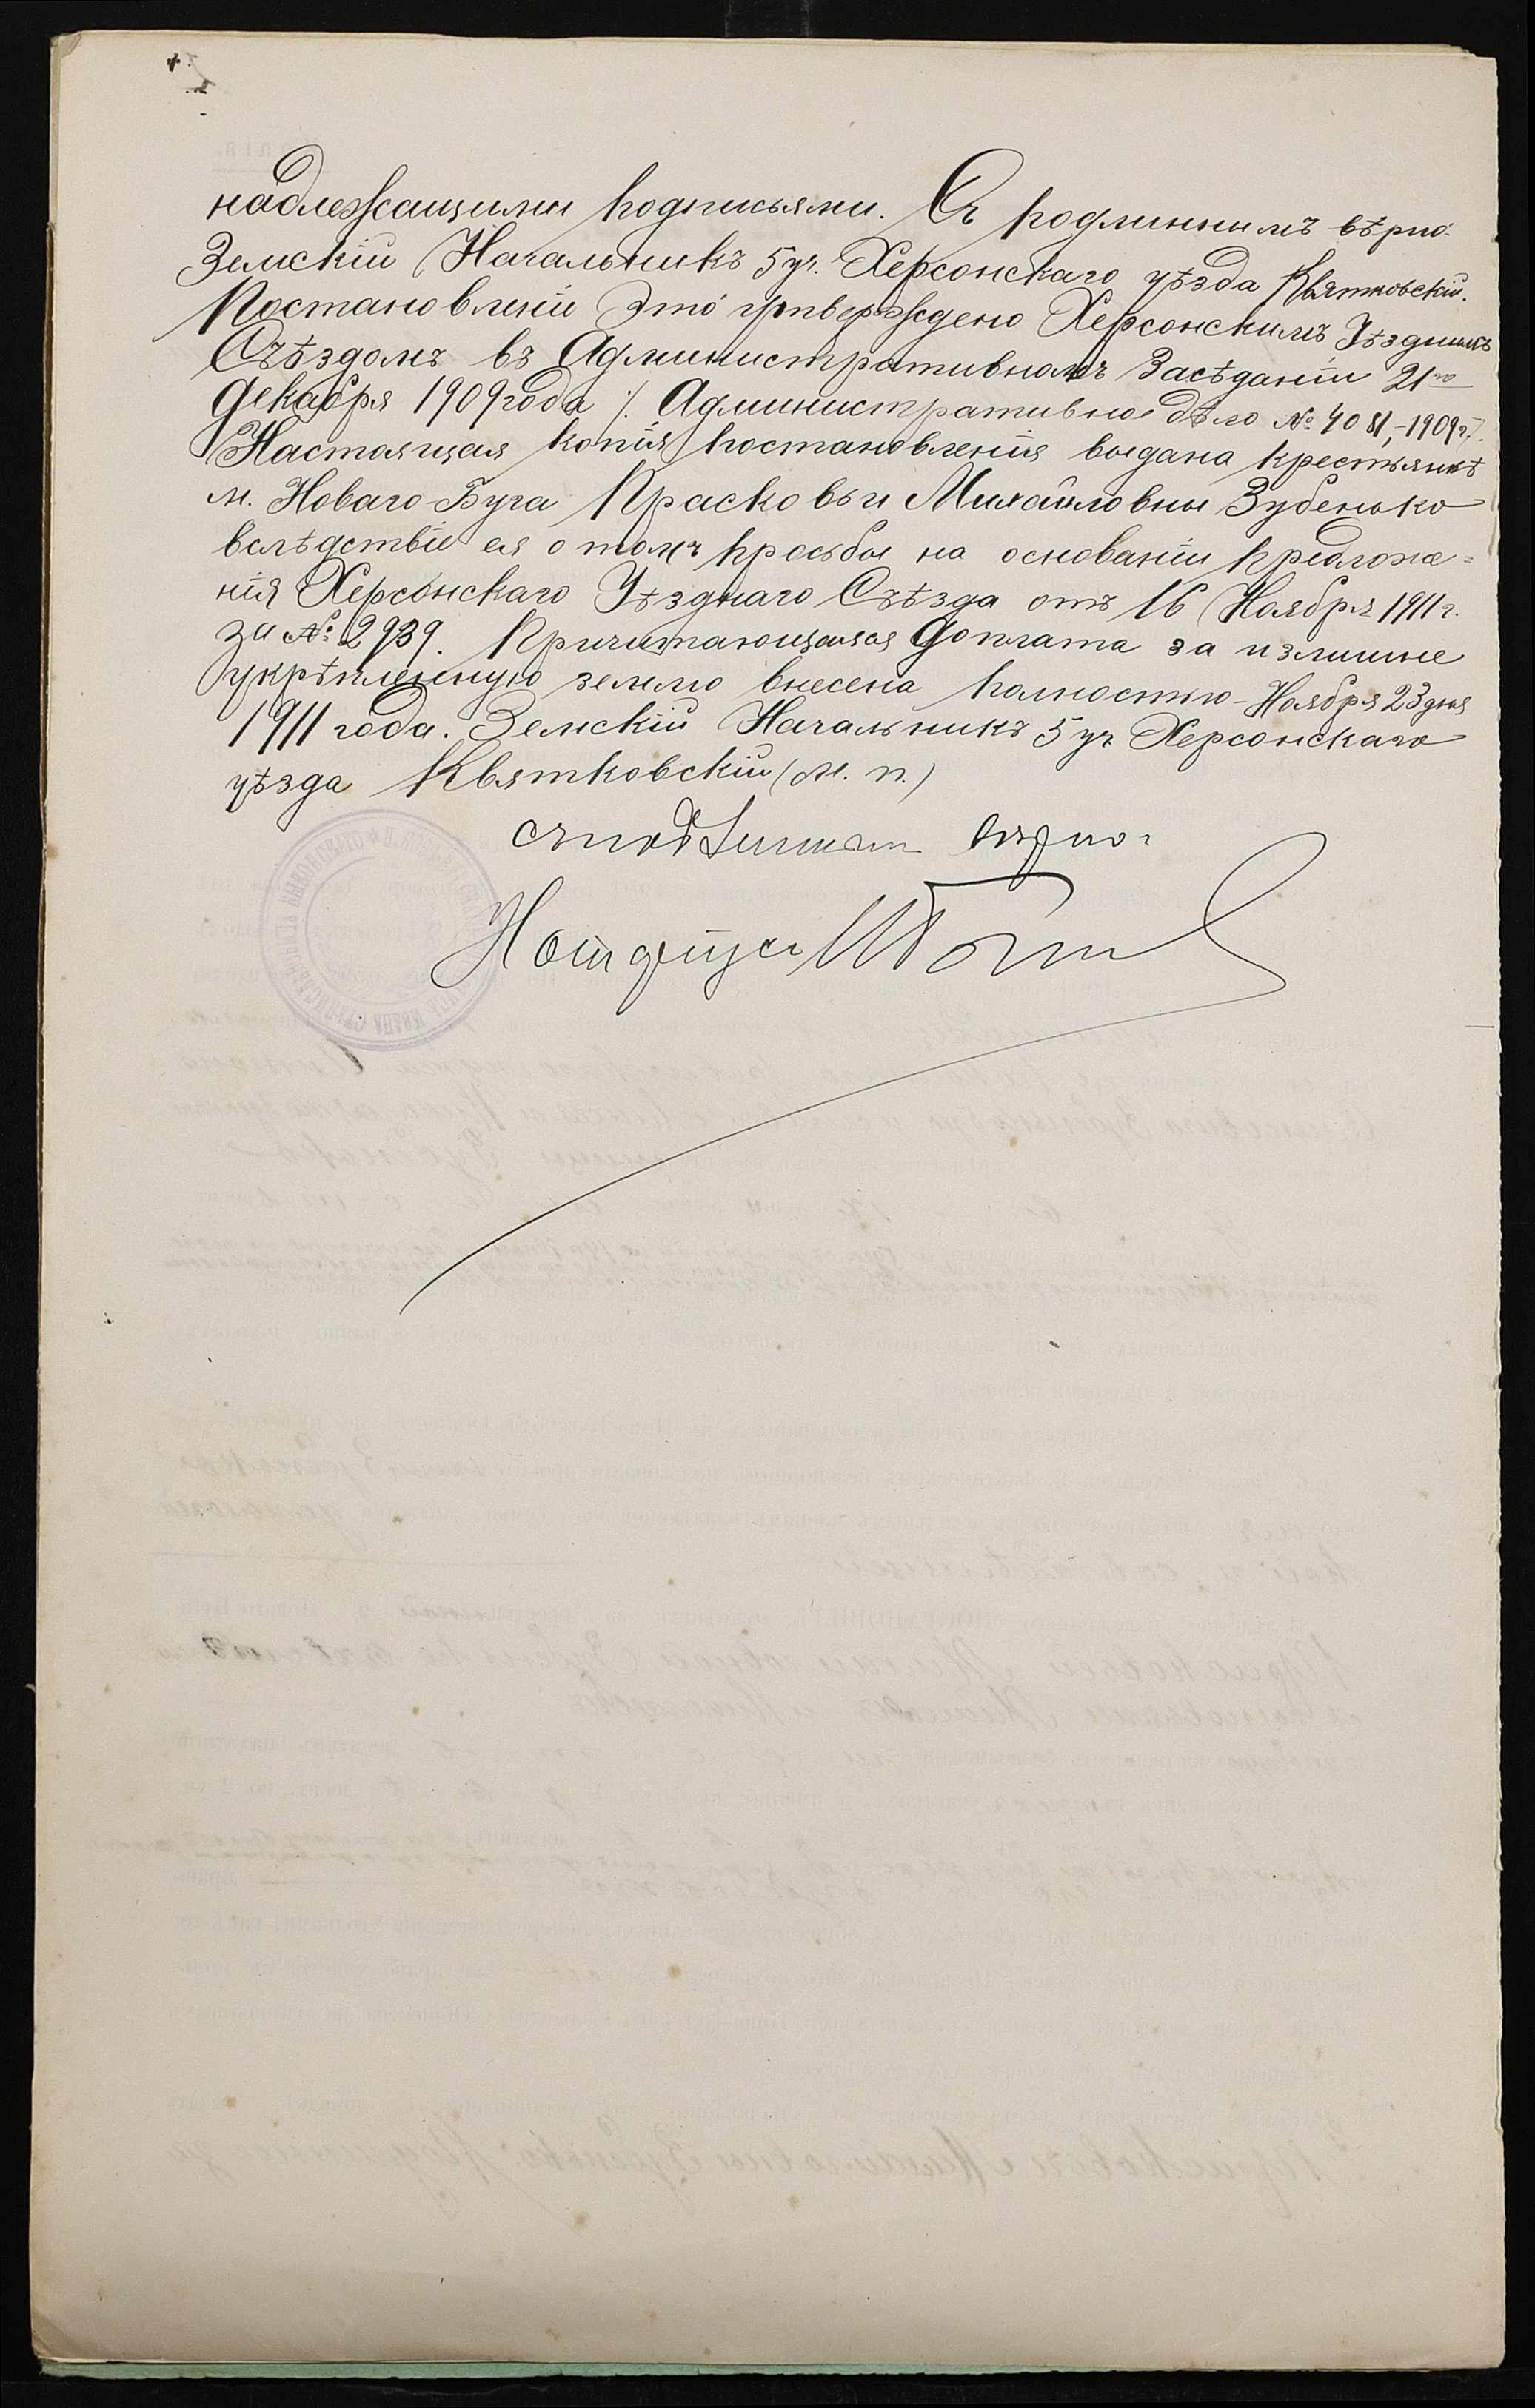 надлежащими подписями. Съ подлиннымъ вѣрно.
Земскій Начальникъ 5 уч. Херсонскаго уѣзда Квятковскій.
Постановленіе это утверждено Херсонскимъ Уѣзднымъ
Съѣздомъ въ Административномъ Засѣданіи 21го
Декабря 1909 года /. Административное дѣло № 4081,-1909 г/.
Настоящая копія постановленія выдана крестьянкѣ
м. Новаго-Буга Прасковьи Михайловны Зубенько
вслѣдствіе ея о томъ просьбы на основаніи предложе=
нія Херсонскаго Уѣзднаго Съѣзда отъ 16 Ноября 1911 г.
за № 2939. Причитающаяся доплата за излишне
укрѣпленную землю внесена полностью - Ноября 23 дня
1911 года. Земскій Начальникъ 5 уч Херсонскаго
уѣзда Квятковскій (М. п.)
съ подлиннымъ вѣрно:
Нотаріусъ